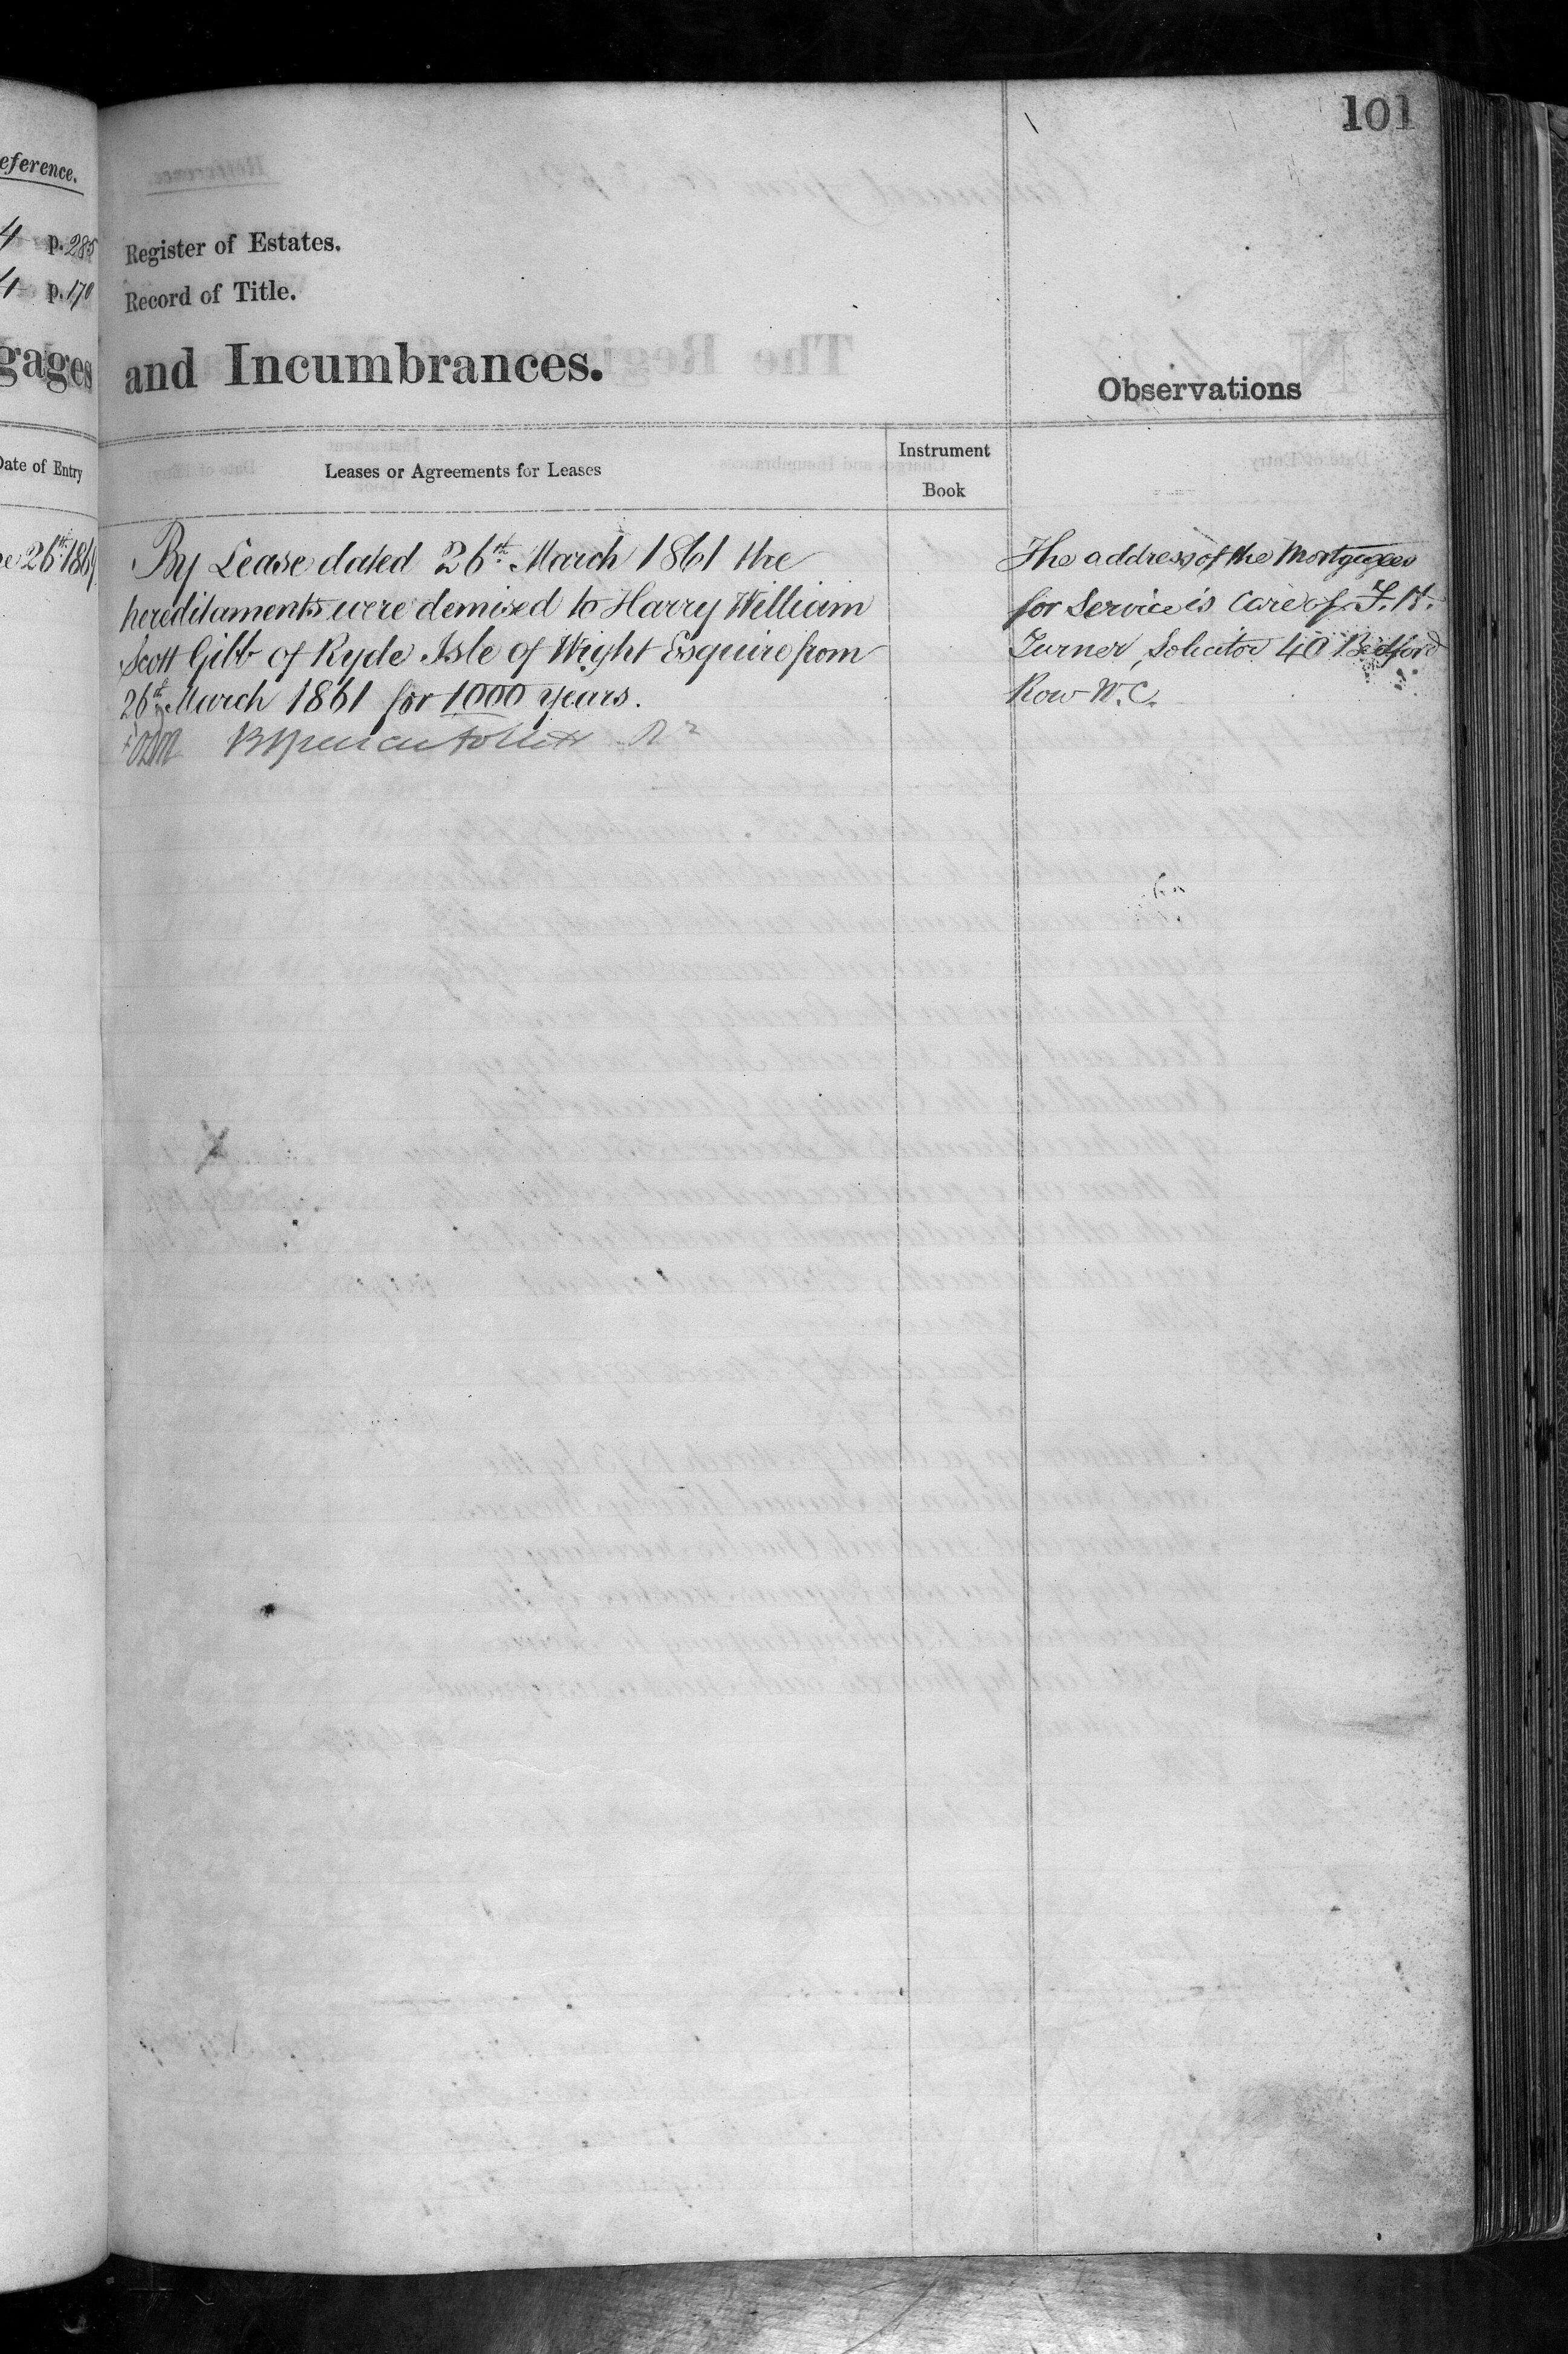 101
eference.
4 p. 285
4 p. 170
gages
Date of Entry
26th 1869
Register of Estates.
Record of Title.
and Incumbrances.
Observations
Leases or Agreements for Leases
Instrument
Book
By Lease dated 26th March 1861 the
hereditaments were demised to Harry William
Scott Gibb of Ryde Isle of Wight Esquire from
26th March 1861 for 1000 years.
The address of the Mortgagees
for Service is Care of F. H.
Turner, Solicitor 40 Bedford
Row W.C.